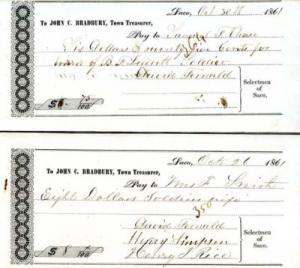 Saco, Oct 30th 1861
To JOHN C. BRADBURY, Town Treasurer,
Pay to Samuel F. Chase
Six Dollars & seventy five Cents for
ward of B. F. Soldier
David Fernald
Selectmen
of
Saco.
$6 75/100
Saco, Oct 26 1861
To JOHN C. BRADBURY, Town Treasurer,
Pay to Mrs F. Smith
Eight Dollars Soldiers wife
350
David Fernald
Henry Simpson
Henry S. Rice
Selectmen
of
Saco.
$8 /100